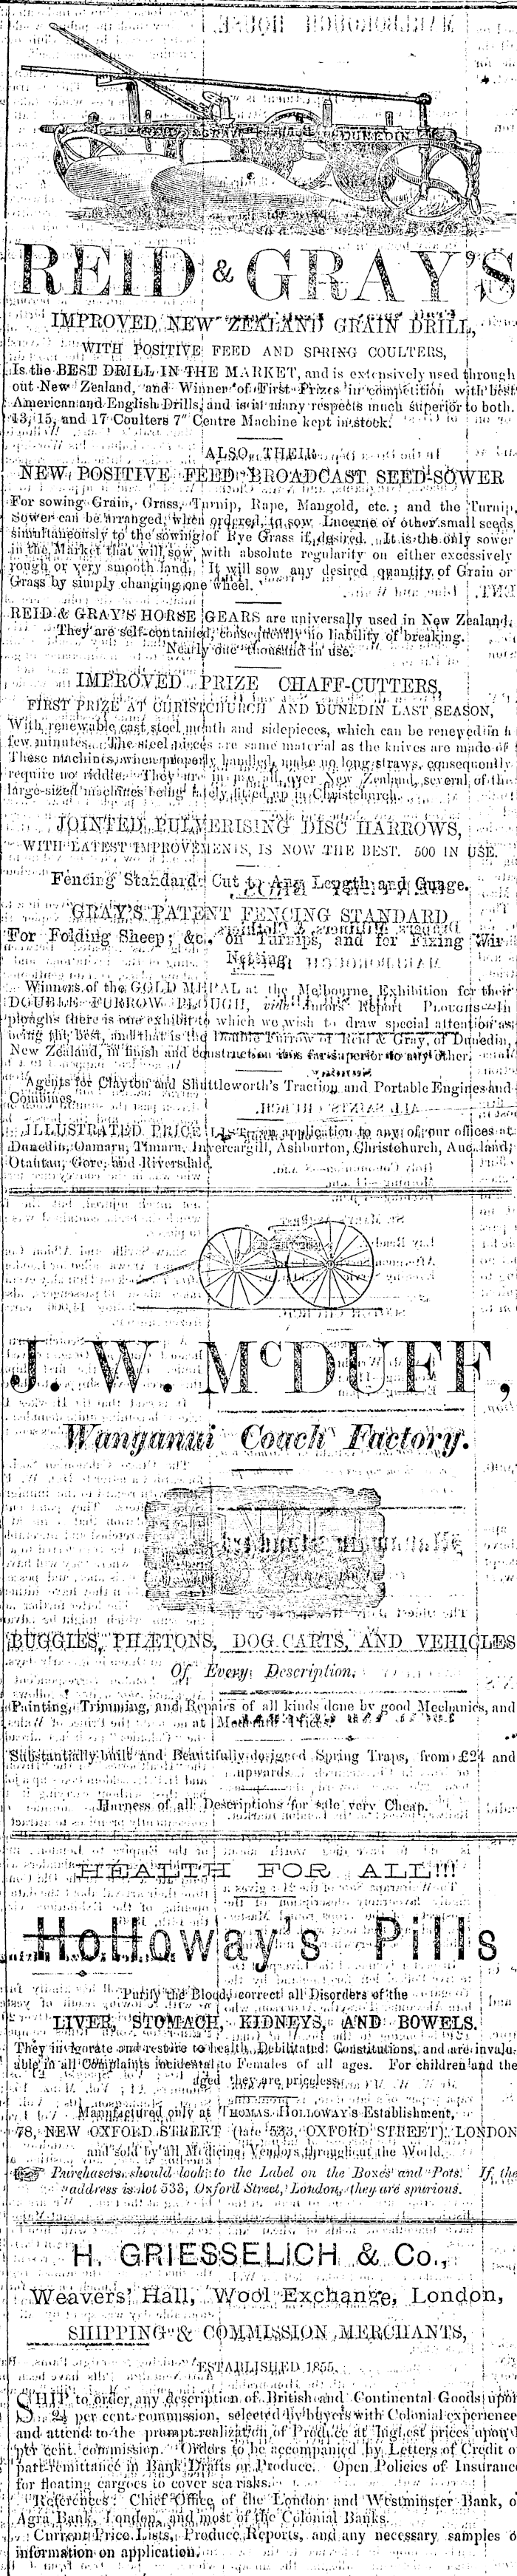 REID & GRAY'S
IMPROVED NEW ZEALAND GRAIN DRILL,
WITH POSITIVE FEED AND SPRING COULTERS,
Is the BEST DRILL IN THE MARKET, and is extensively used through
out New Zealand, and Winner of First Prizes in competition with best
American and English Drills, and is in many respects much superior to both.
13, 15, and 17 Coulters 7" Centre Machine kept in stock.
ALSO, THEIR
NEW POSITIVE FEED BROADCAST SEED-SOWER
For sowing Grain, Grass, Turnip, Rape, Mangold, etc.; and the Turnip
Sower can be arranged, when ordered, to sow Lucerne or other small seeds
simultaneously to the sowing of Rye Grass if desired. It is the only sower
in the Market that will sow with absolute regularity on either excessively
rough or very smooth land. It will sow any desired quantity of Grain or
Grass by simply changing one wheel.
REID & GRAY'S HORSE GEARS are universally used in New Zealand.
They are self-contained, consequently no liability of breaking.
Nearly one thousand in use.
IMPROVED PRIZE CHAFF-CUTTERS,
FIRST PRIZE AT CHRISTCHURCH AND DUNEDIN LAST SEASON,
With renewable cast steel mouth and sidepieces, which can be renewed in a
few minutes. The steel pieces are same material as the knives are made of
These machines, when properly handled, make no long straws, consequently
require no riddle. They are in use all over New Zealand, several of the
large-sized machines being lately fitted up in Christchurch.
JOINTED PULVERISING DISC HARROWS,
WITH LATEST IMPROVEMENTS, IS NOW THE BEST. 500 IN USE.
Fencing Standard Cut to Any Length and Guage.
GRAY'S PATENT FENCING STANDARD
For Folding Sheep, &c., on Turnips, and for Fixing Wir
Netting.
Winners of the GOLD MEDAL at the Melbourne Exhibition for their
DOUBLE FURROW PLOUGH, Jurors' Report Ploughs—In
ploughs there is one exhibit to which we wish to draw special attention as
being the best, and that is the Double Furrow of Reid & Gray, of Dunedin,
New Zealand, in finish and construction this far superior to any other.
Agents for Clayton and Shuttleworth's Traction and Portable Engines and
Combines.
ILLUSTRATED PRICE LIST on application to any of our offices at
Dunedin, Oamaru, Timaru, Invercargill, Ashburton, Christchurch, Auckland,
Otautau, Gore, and Riversdale.
J. W. McDUFF,
Wanganui Coach Factory.
BUGGIES, PHÆTONS, DOG CARTS, AND VEHICLES
Of Every Description.
Painting, Trimming, and Repairs of all kinds done by good Mechanics, and
at Moderate Prices.
Substantially built and Beautifully designed Spring Traps, from £24 and
upwards
Harness of all Descriptions for sale very Cheap.
HEALTH FOR ALL!!!
Holloway's Pills
Purify the Blood, correct all Disorders of the
LIVER, STOMACH, KIDNEYS, AND BOWELS.
They invigorate and restore to health Debilitated Constitutions, and are invalu-
able in all Complaints incidental to Females of all ages. For children and the
aged they are priceless.
Manufactured only at THOMAS HOLLOWAY'S Establishment,
78, NEW OXFORD STREET (late 533, OXFORD STREET), LONDON
and sold by all Medicine Vendors throughout the World.
Purchasers should look to the Label on the Boxes and Pots. If the
address is not 533, Oxford Street, London, they are spurious.
H. GRIESSELICH & Co.,
Weavers' Hall, Wool Exchange, London,
SHIPPING & COMMISSION MERCHANTS,
ESTABLISHED 1855.
SHIP to order any description of British and Continental Goods upon
2½ per cent. commission, selected by buyers with Colonial experience
and attend to the prompt realization of Produce at highest prices upon
per cent. commission. Orders to be accompanied by Letters of Credit o
part remittance in Bank Drafts or Produce. Open Policies of Insuranc
for floating cargoes to cover sea risks.
References: Chief Office of the London and Westminster Bank, o
Agra Bank, London, and most of the Colonial Banks.
Current Price Lists, Produce Reports, and any necessary samples o
information on application.